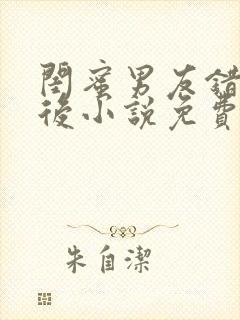 閨蜜男友錯
後小說免費
朱自潔